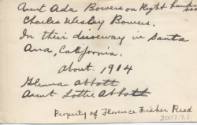 Aunt Ada Bowers on Right
Charles Wesley Bowers.
In their driveway in Santa
Ana, California.
About 1914
Glenna Abbott
Aunt Lottie Abbott
Property of Florence Fisher Reed